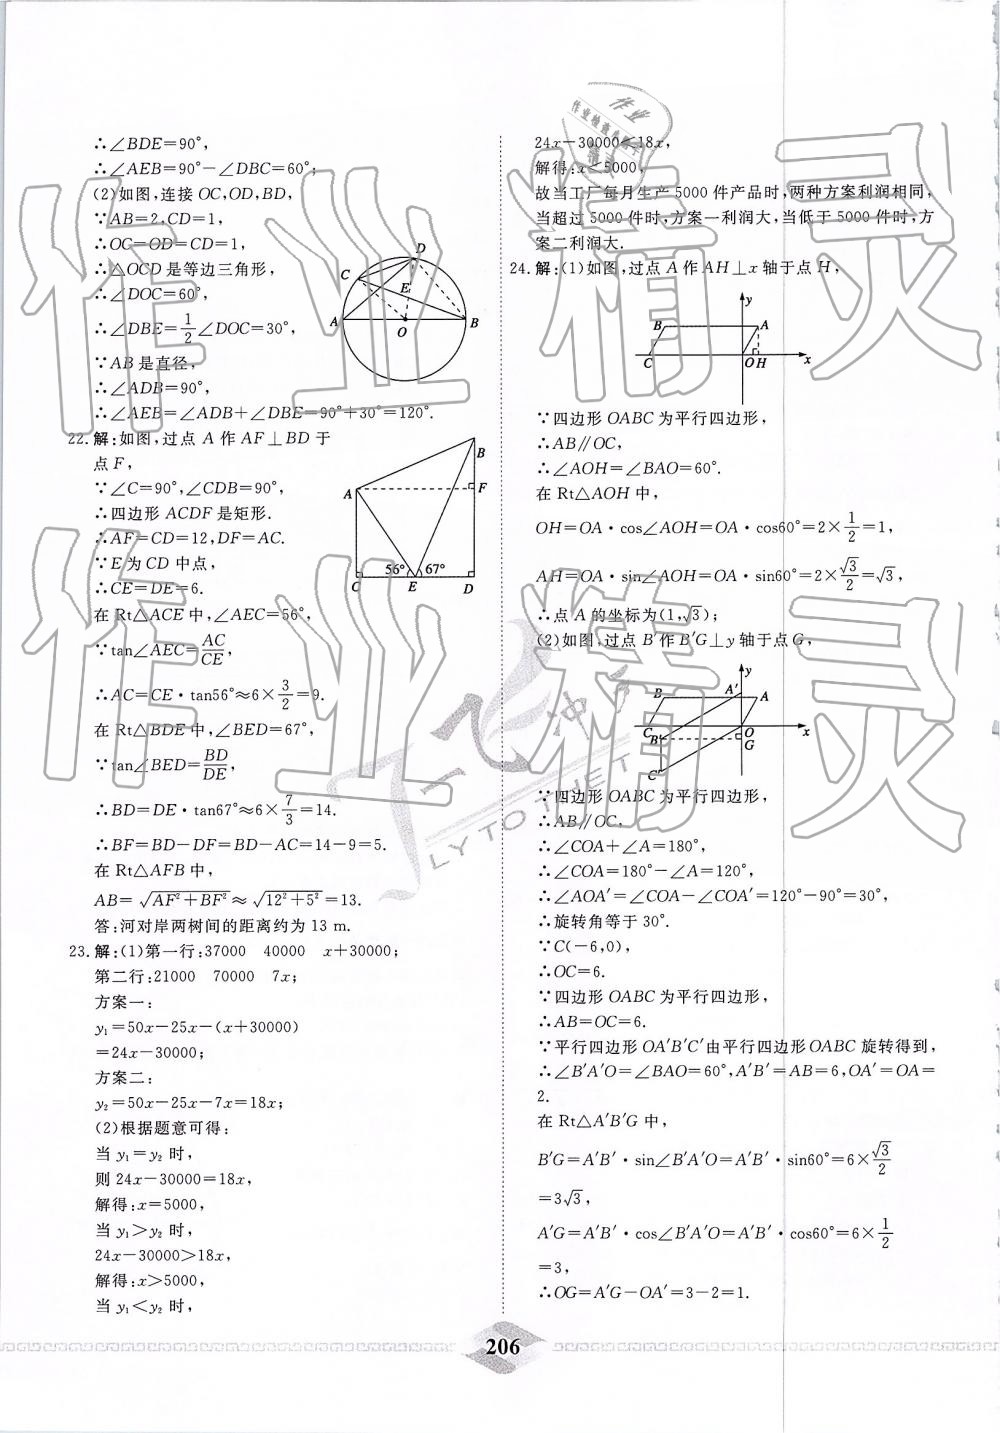 ∴∠BDE=90°,
∴∠AEB=90°-∠DBC=60°;
(2)如图,连接 OC,OD,BD,
∵AB=2,CD=1,
∴OC=OD=CD=1,
∴△OCD 是等边三角形,
∴∠DOC=60°,
∴∠DBE=1/2∠DOC=30°,
∵AB 是直径,
∴∠ADB=90°,
∴∠AEB=∠ADB+∠DBE=90°+30°=120°.
D
C
E
A
O
B
22.解:如图,过点 A 作 AF⊥BD 于
点 F,
∵∠C=90°,∠CDB=90°,
∴四边形 ACDF 是矩形.
∴AF=CD=12,DF=AC.
∵E 为 CD 中点,
∴CE=DE=6.
在 Rt△ACE 中,∠AEC=56°,
∵tan∠AEC=AC/CE,
∴AC=CE·tan56°≈6×3/2=9.
在 Rt△BDE 中,∠BED=67°,
∵tan∠BED=BD/DE,
∴BD=DE·tan67°≈6×7/3=14.
∴BF=BD-DF=BD-AC=14-9=5.
在 Rt△AFB 中,
AB=√(AF²+BF²)≈√(12²+5²)=13.
答:河对岸两树间的距离约为 13 m.
B
A
F
56° 67°
C E D
23.解:(1)第一行:37000 40000 x+30000;
第二行:21000 70000 7x;
方案一:
y₁=50x-25x-(x+30000)
=24x-30000;
方案二:
y₂=50x-25x-7x=18x;
(2)根据题意可得:
当 y₁=y₂ 时,
则 24x-30000=18x,
解得:x=5000,
当 y₁>y₂ 时,
24x-30000>18x,
解得:x>5000,
当 y₁<y₂ 时,
24x-30000<18x,
解得:x<5000,
故当工厂每月生产 5000 件产品时,两种方案利润相同,
当超过 5000 件时,方案一利润大,当低于 5000 件时,方
案二利润大.
24.解:(1)如图,过点 A 作 AH⊥x 轴于点 H,
y
B A
C O H x
∵四边形 OABC 为平行四边形,
∴AB∥OC,
∴∠AOH=∠BAO=60°.
在 Rt△AOH 中,
OH=OA·cos∠AOH=OA·cos60°=2×1/2=1,
AH=OA·sin∠AOH=OA·sin60°=2×√3/2=√3,
∴点 A 的坐标为(1,√3);
(2)如图,过点 B′作 B′G⊥y 轴于点 G,
y
A′
B A
C O x
B′ G
C′
∵四边形 OABC 为平行四边形,
∴AB∥OC,
∴∠COA+∠A=180°,
∴∠COA=180°-∠A=120°,
∴∠AOA′=∠COA-∠COA′=120°-90°=30°,
∴旋转角等于 30°.
∵C(-6,0),
∴OC=6.
∵四边形 OABC 为平行四边形,
∴AB=OC=6.
∵平行四边形 OA′B′C′由平行四边形 OABC 旋转得到,
∴∠B′A′O=∠BAO=60°,A′B′=AB=6,OA′=OA=
2.
在 Rt△A′B′G 中,
B′G=A′B′·sin∠B′A′O=A′B′·sin60°=6×√3/2
=3√3,
A′G=A′B′·cos∠B′A′O=A′B′·cos60°=6×1/2
=3,
∴OG=A′G-OA′=3-2=1.
206
作业精灵
作业精灵